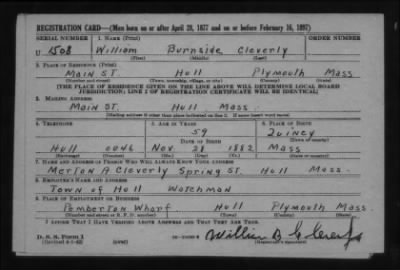 REGISTRATION CARD—(Men born on or after April 28, 1877 and on or before February 16, 1897)
SERIAL NUMBER 1. NAME (Print) ORDER NUMBER
U 1508 William Burnside Cleverly
(First) (Middle) (Last)
2. PLACE OF RESIDENCE (Print)
Main ST. Hull Plymouth Mass
(Number and street) (Town, township, village, or city) (County) (State)
[THE PLACE OF RESIDENCE GIVEN ON THE LINE ABOVE WILL DETERMINE LOCAL BOARD
JURISDICTION; LINE 2 OF REGISTRATION CERTIFICATE WILL BE IDENTICAL]
3. MAILING ADDRESS
Main ST. Hull Mass.
[Mailing address if other than place indicated on line 2. If same insert word same]
4. TELEPHONE 5. AGE IN YEARS 6. PLACE OF BIRTH
59 Quincy
DATE OF BIRTH (Town or county)
Hull 0046 Nov 28 1882 Mass
(Exchange) (Number) (Mo.) (Day) (Yr.) (State or country)
7. NAME AND ADDRESS OF PERSON WHO WILL ALWAYS KNOW YOUR ADDRESS
Merton A Cleverly Spring ST. Hull Mass.
8. EMPLOYER'S NAME AND ADDRESS
Town of Hull Watchman
9. PLACE OF EMPLOYMENT OR BUSINESS
Pemberton Wharf Hull Plymouth Mass
(Number and street or R. F. D. number) (Town) (County) (State)
I AFFIRM THAT I HAVE VERIFIED ABOVE ANSWERS AND THAT THEY ARE TRUE.
D. S. S. Form 1
(Revised 4-1-42) (over)
William B Cleverly
(Registrant's signature)